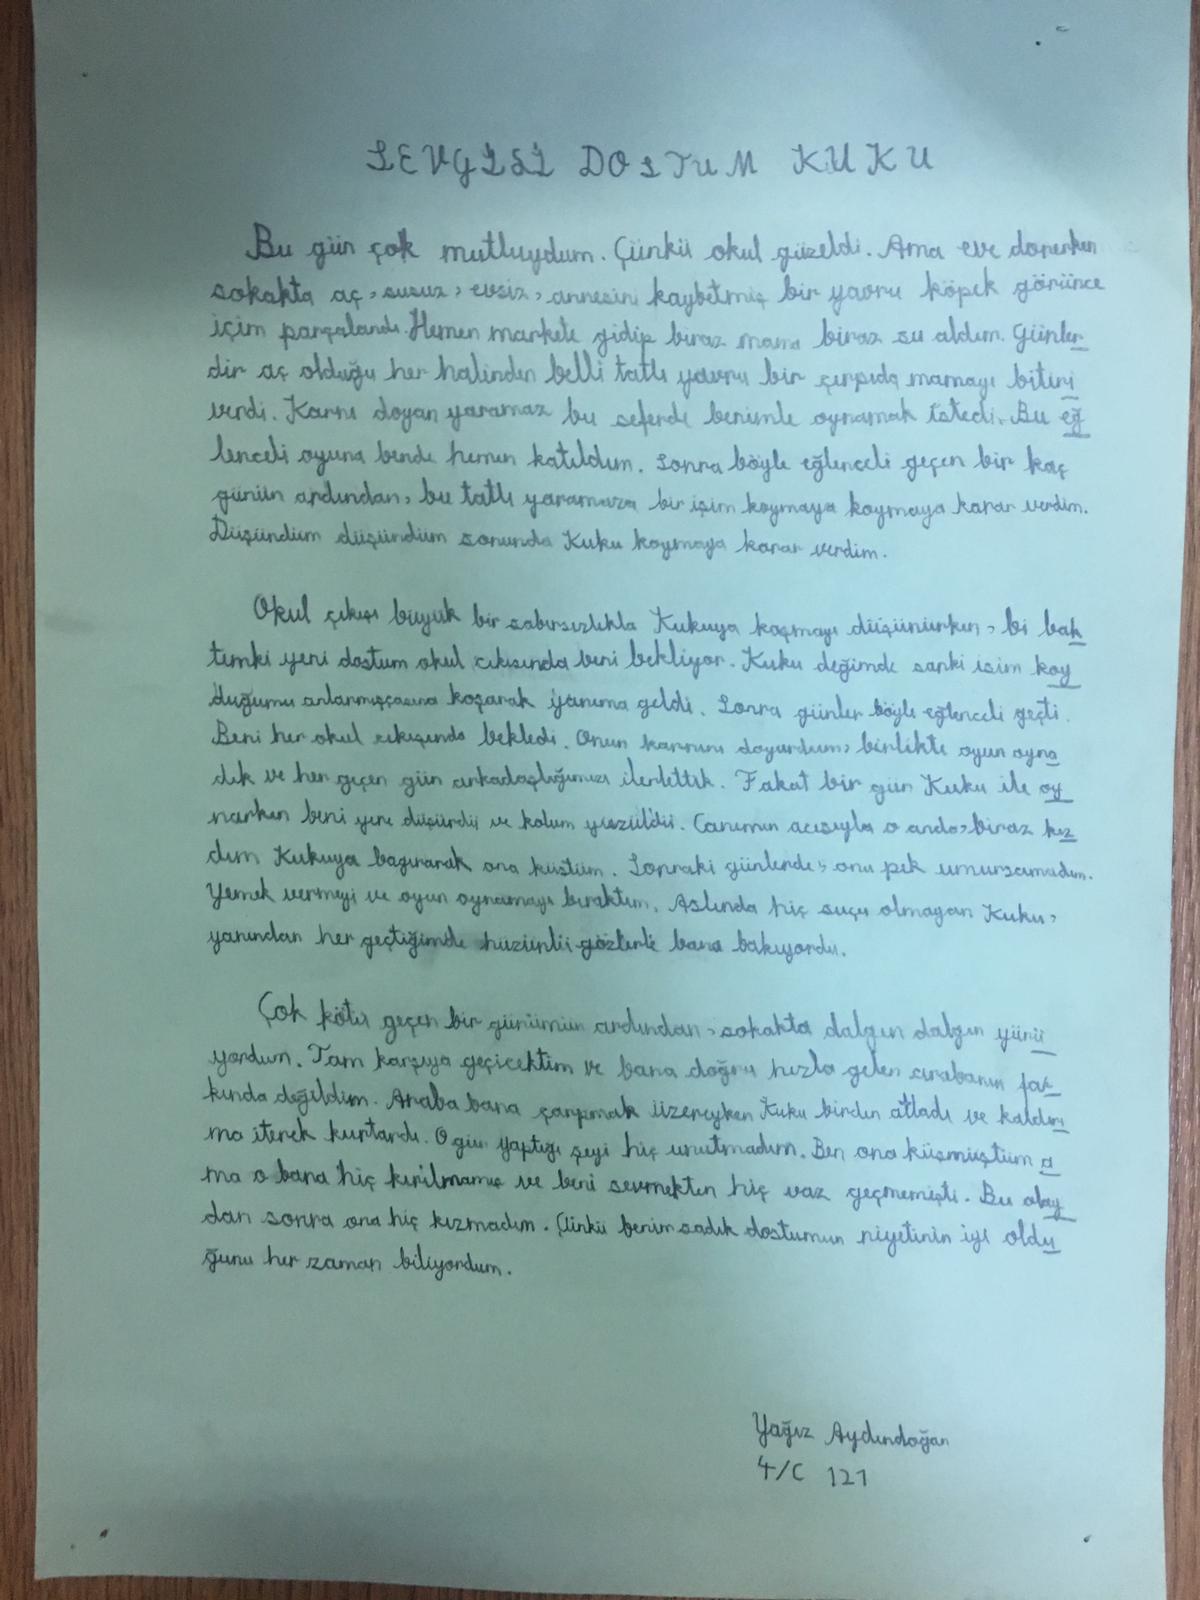 SEVGİLİ DOSTUM KUKU
Bu gün çok mutluydum. Çünkü okul güzeldi. Ama eve dönerken
sokakta aç, susuz, evsiz, annesini kaybetmiş bir yavru köpek görünce
içim parçalandı. Hemen markete gidip biraz mama biraz su aldım. Günler
dir aç olduğu her halinden belli tatlı yavru bir çırpıda mamayı bitiri
verdi. Karnı doyan yaramaz bu seferde benimle oynamak istedi. Bu eğ
lenceli oyuna bende hemen katıldım. Sonra böyle eğlenceli geçen bir kaç
günün ardından, bu tatlı yaramaza bir işim koymaya koymaya karar verdim.
Düşündüm düşündüm sonunda Kuku koymaya karar verdim.
Okul çıkışı büyük bir sabırsızlıkla Kukuya koşmayı düşünürken, bi bak
tımki yeni dostum okul cıkısında beni bekliyor. Kuku değimde sanki isim koy
duğumu anlarmışcasına koşarak yanıma geldi. Sonra günler böyle eğlenceli geçti.
Beni her okul cıkışında bekledi. Onun karnını doyurdum, birlikte oyun oyna
dık ve her geçen gün arkadaşlığımızı ilerlettik. Fakat bir gün Kuku ile oy
narken beni yere düşürdü ve kolum yüzüldü. Canımın acısıyla o anda, biraz kız
dım Kukuya bağırarak ona küstüm. Sonraki günlerde, onu pek umursamadım.
Yemek vermeyi ve oyun oynamayı bıraktım. Aslında hiç suçu olmayan Kuku,
yanından her geçtiğimde hüzünlü gözlerle bana bakıyordu.
Çok kötü geçen bir günümün ardından, sokakta dalgın dalgın yürü
yordum. Tam karşıya geçicektim ve bana doğru hızla gelen arabanın far
kında değildim. Araba bana çarpmak üzereyken Kuku birden atladı ve kaldırı
ma iterek kurtardı. O gün yaptığı şeyi hiç unutmadım. Ben ona küsmüştüm a
ma o bana hiç kırılmamış ve beni sevmekten hiç vaz geçmemişti. Bu olay
dan sonra ona hiç kızmadım. Çünkü benim sadık dostumun niyetinin iyi oldu
ğunu her zaman biliyordum.
Yağız Aydındoğan
4/C 121